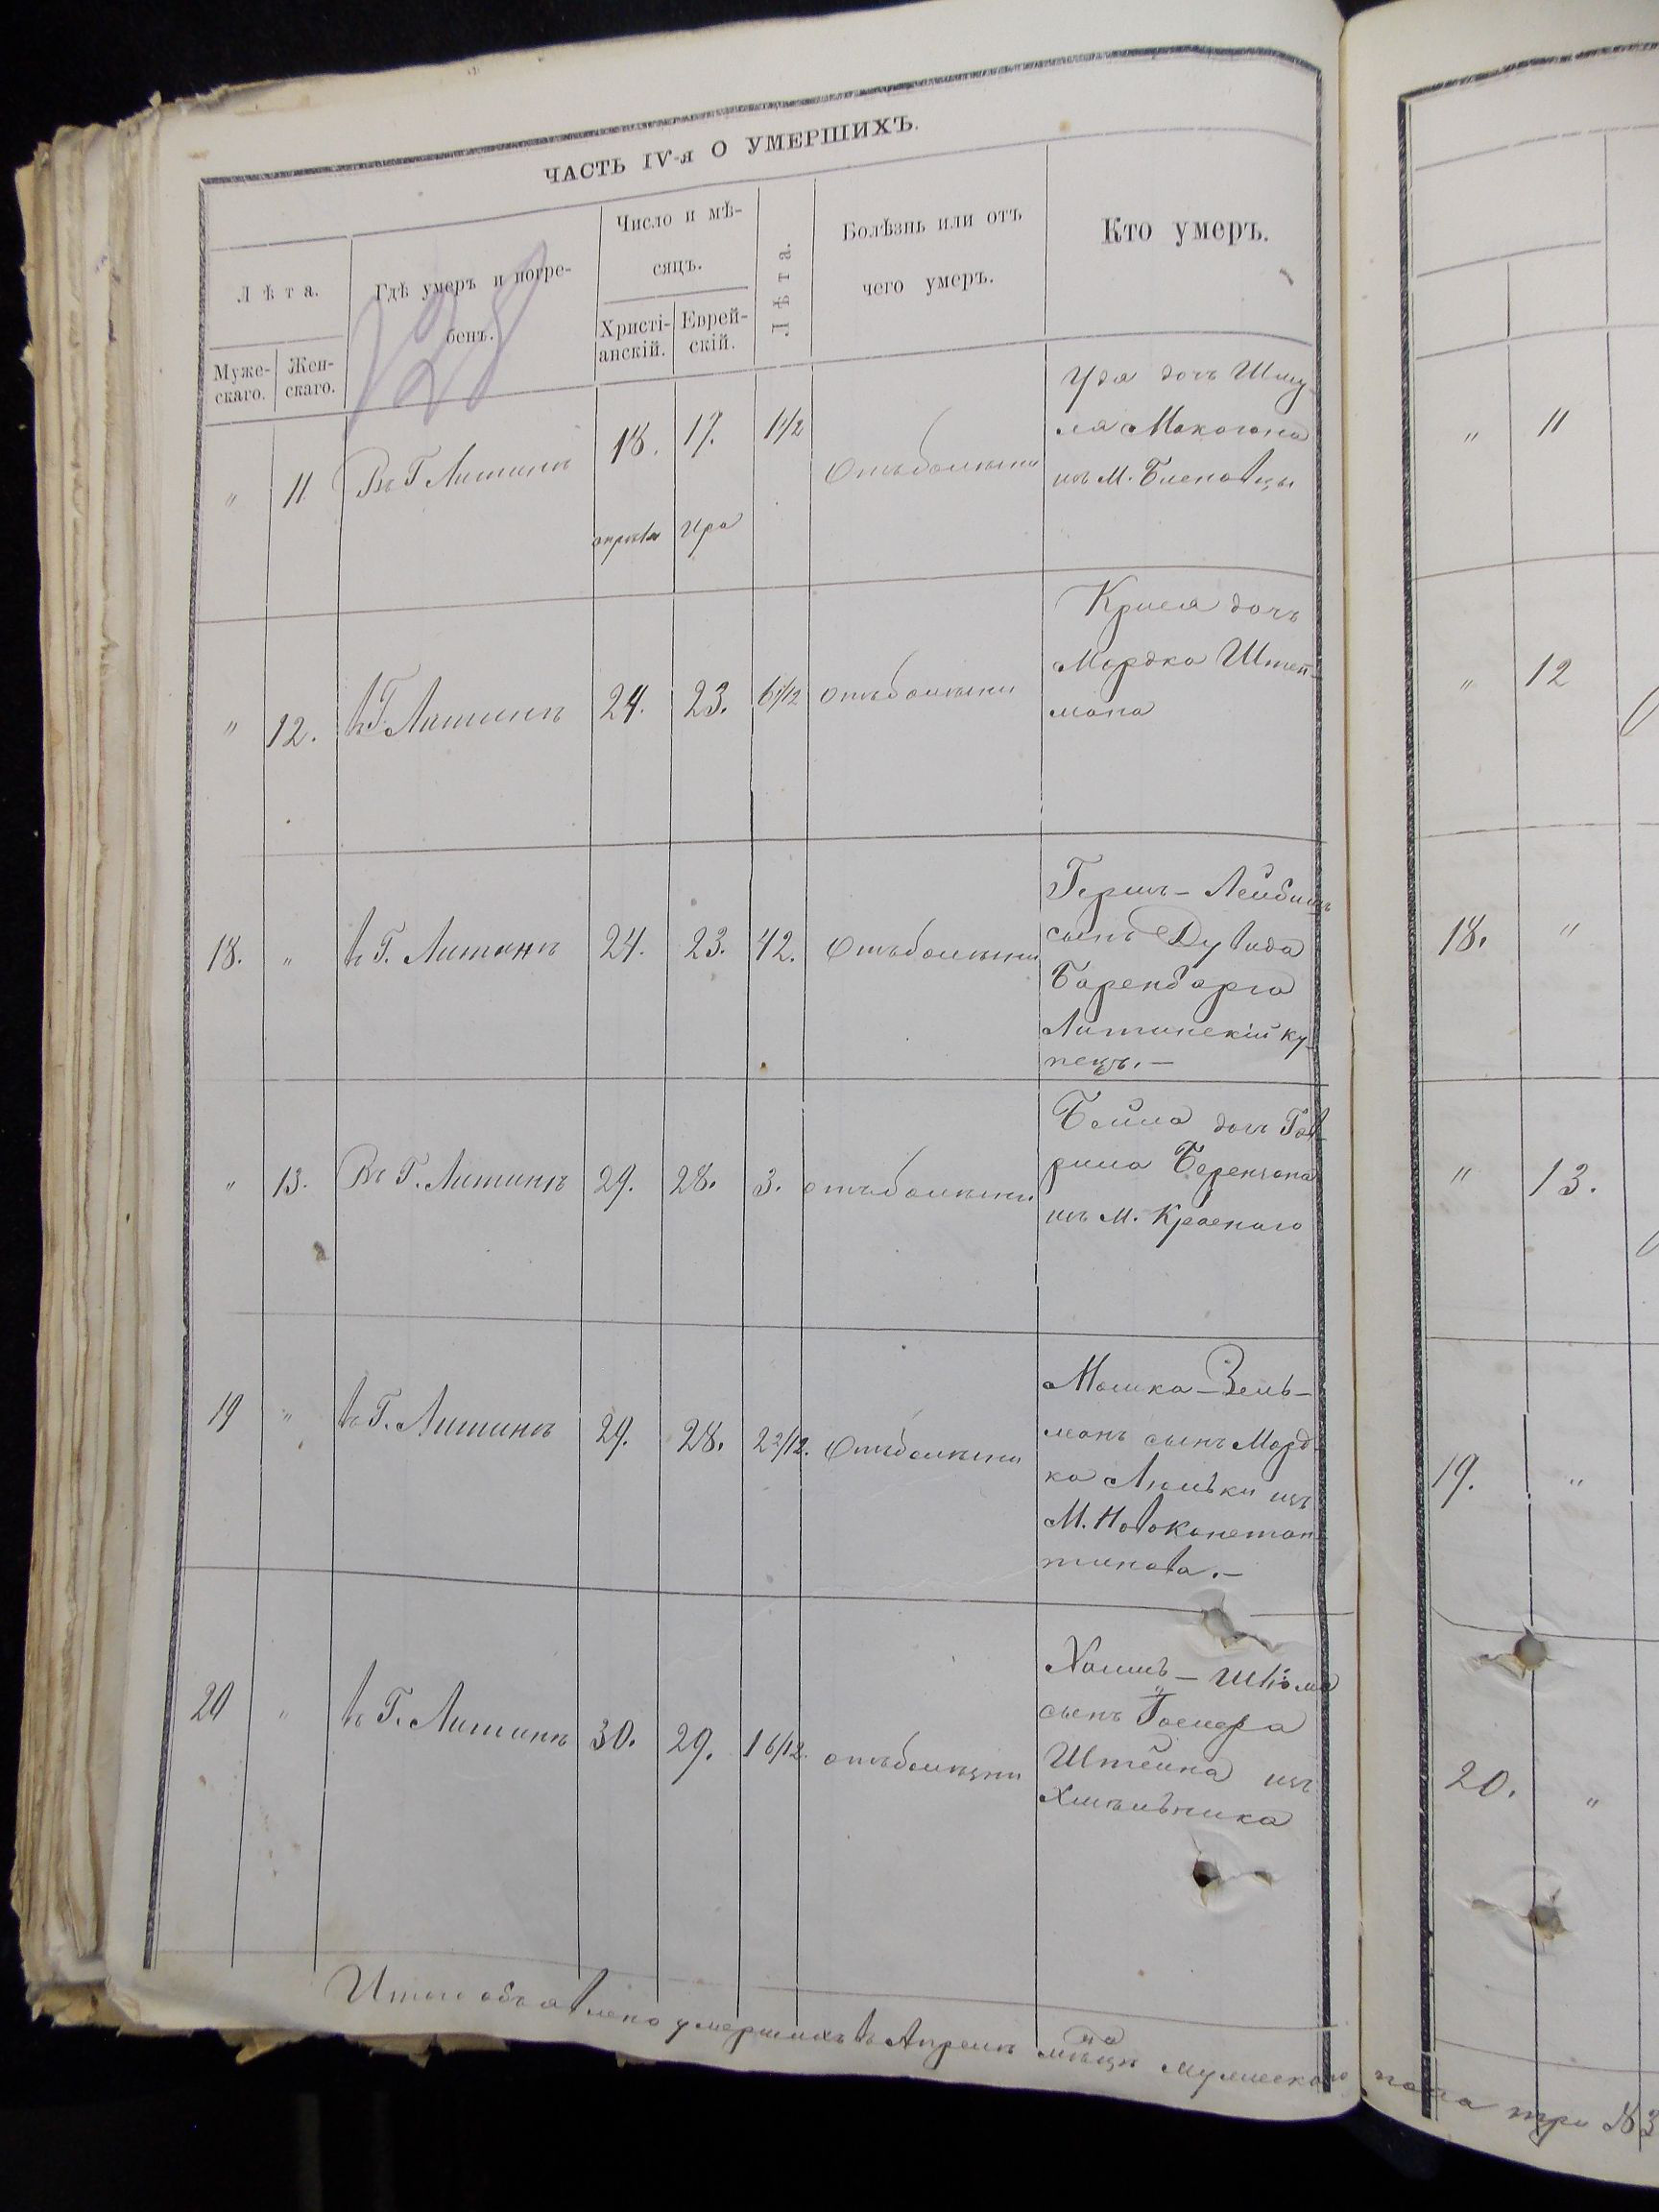 ЧАСТЬ IV-я О УМЕРШИХЪ.
Лѣта.
Муже-
скаго.
Жен-
скаго.
Гдѣ умеръ и погре-
бенъ.
Число и мѣ-
сяцъ.
Христі-
анскій.
Еврей-
скій.
Лѣта.
Болѣзнь или отъ
чего умеръ.
Кто умеръ.
128
" 11 Въ Г. Литинѣ 18. 17. 1 1/2 отъ болѣзни
апрѣля Ира
Удя дочь Шму-
ля Макогона
изъ М.
" 12. въ Г. Литинѣ 24. 23. 6 1/12 отъ болѣзни
дочь
Мордка Штей-
мана
18. " въ Г. Литинѣ 24. 23. 42. отъ болѣзни
Гершъ - Лейбишъ
сынъ Дувида
Баренбарга
Литинскій ку-
пецъ. -
" 13. Въ Г. Литинѣ 29. 28. 3. отъ болѣзни
Бейла дочь Гав-
рила
изъ М. Краснаго
19 " въ Г. Литинѣ 29. 28. 2 2/12. отъ болѣзни
Мошка - Зель-
манъ сынъ Морд-
ка Люльки изъ
М. Новоконстан-
тинова. -
20 " въ Г. Литинѣ 30. 29. 1 6/12 отъ болѣзни
Хаимъ -
сынъ
Штейна изъ
Хмѣльника
Итого объявлено умершихъ въ Апрелѣ мѣсцѣ мужескаго пола три № 3
" 11
" 12
18. "
" 13.
19. "
20. "